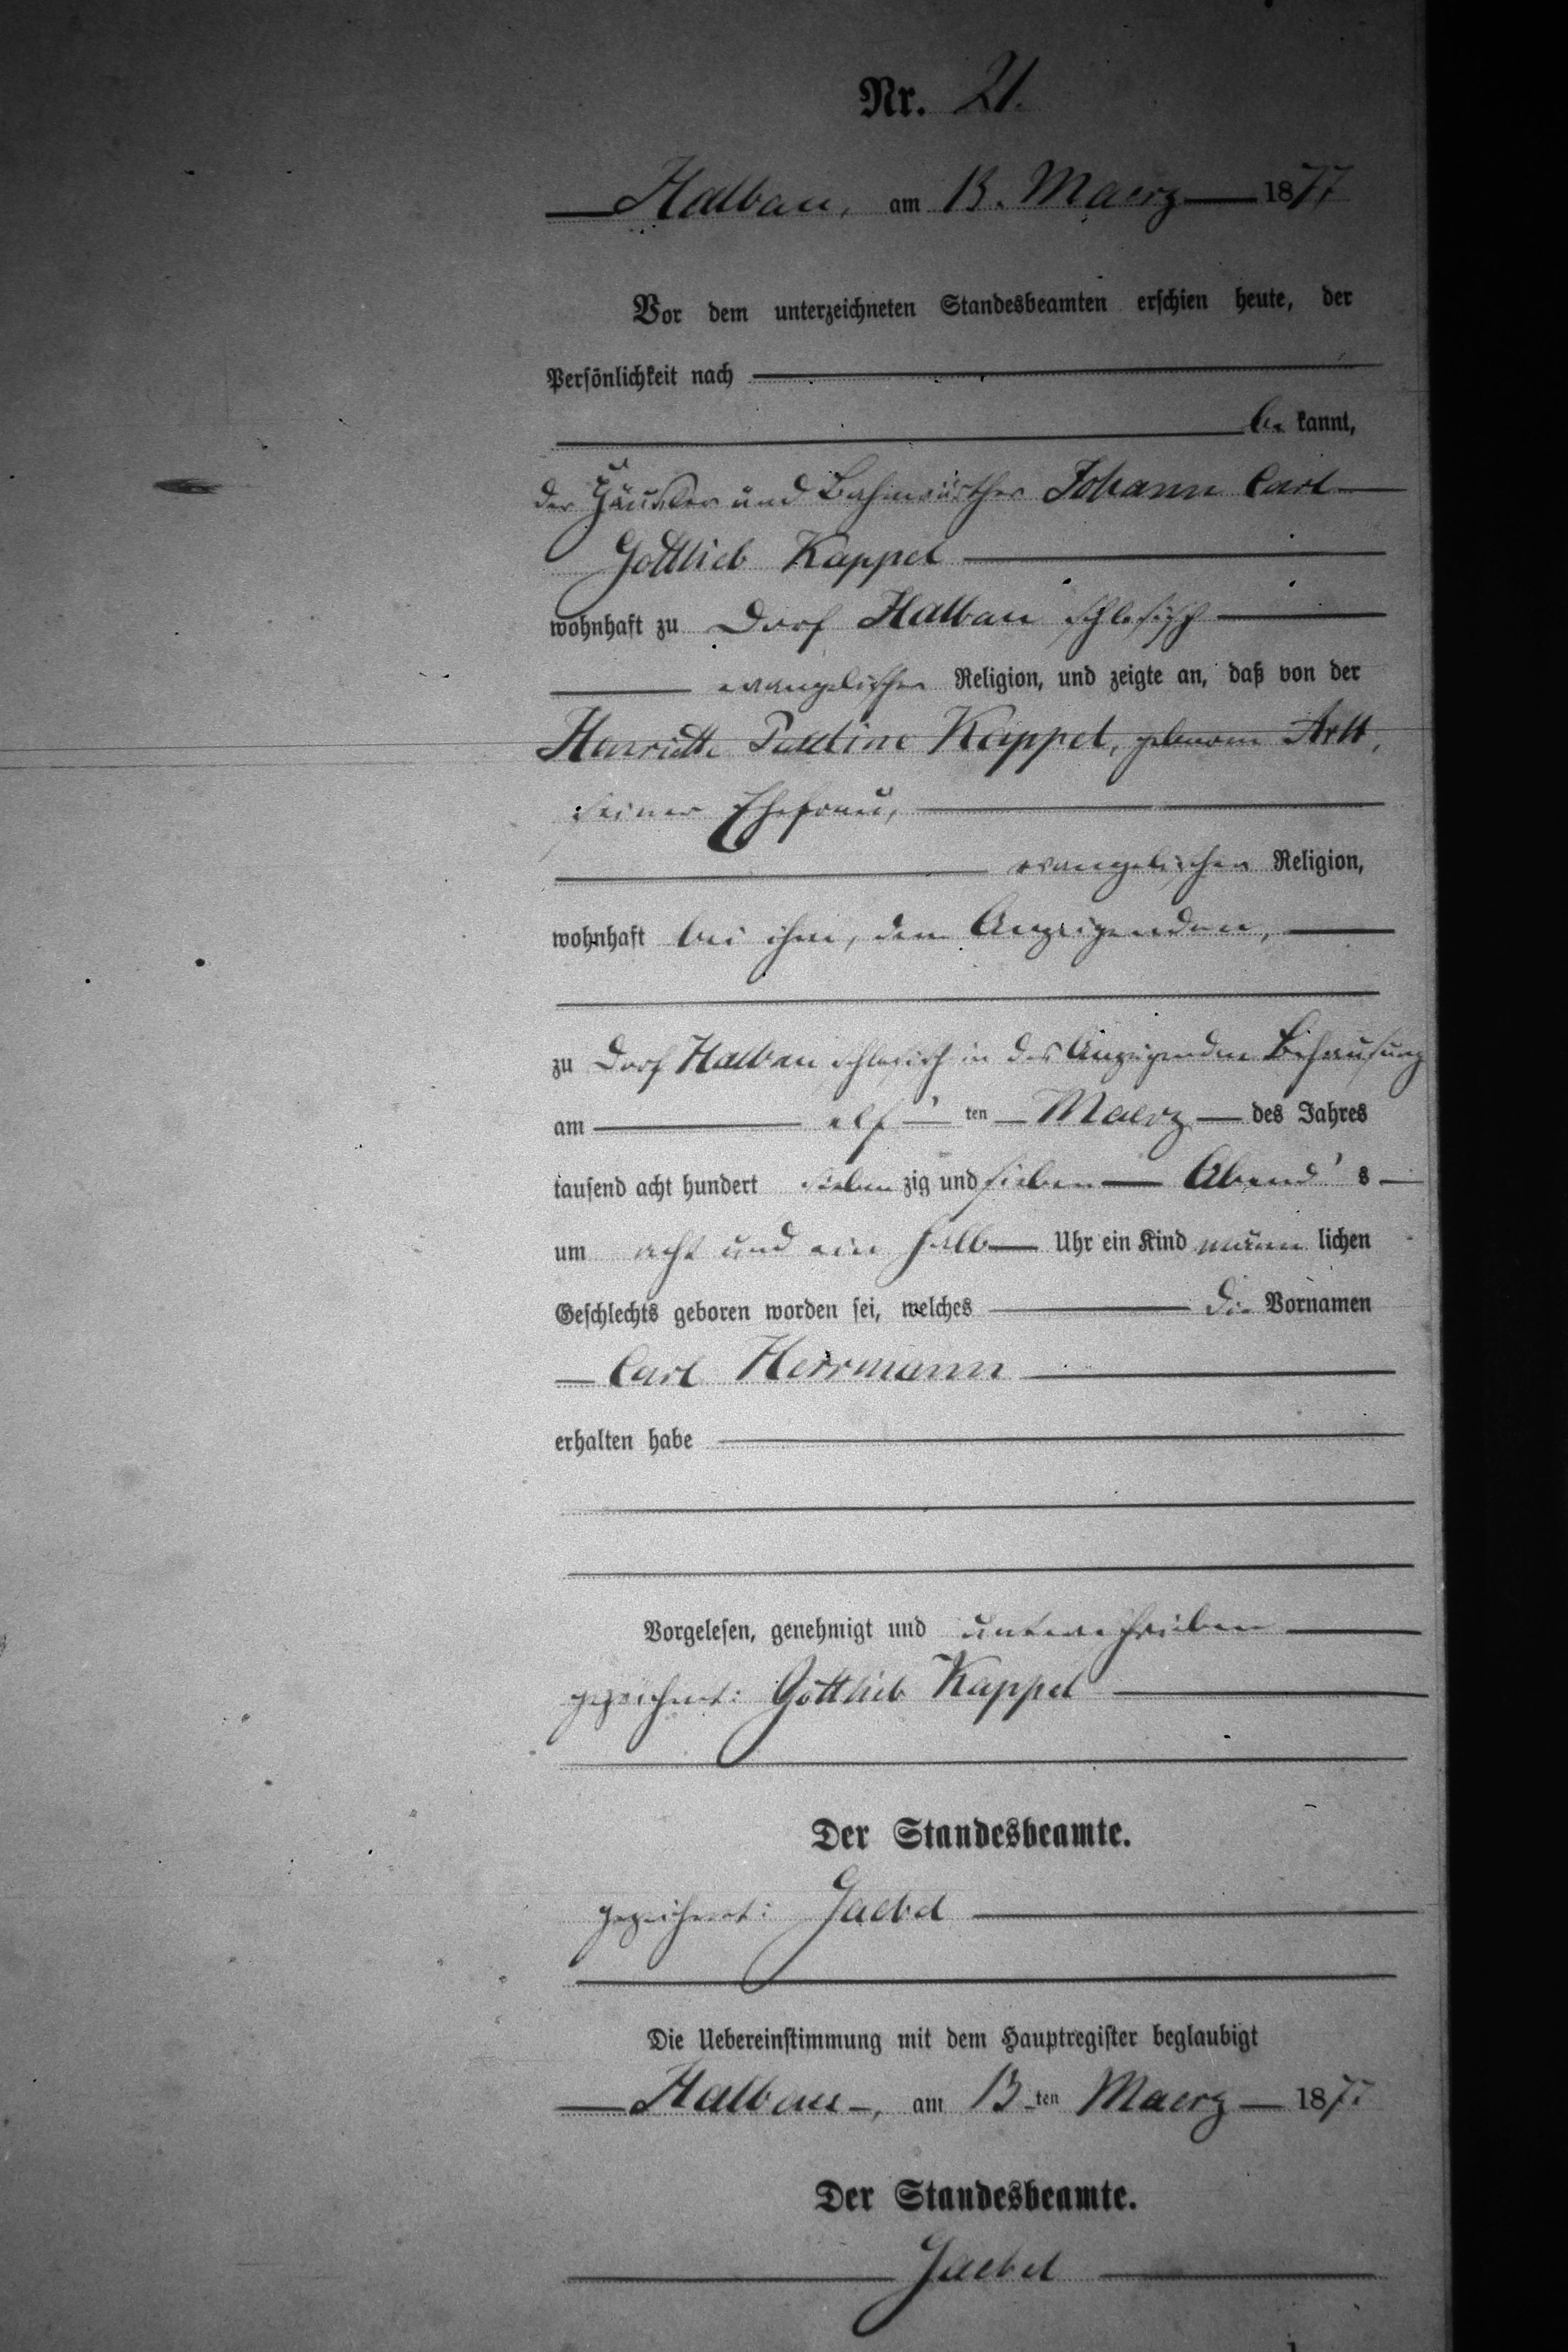 Nr. 21.
Halbau, am 13. Maerz 1877
Vor dem unterzeichneten Standesbeamten erschien heute, der
Persönlichkeit nach
be kannt,
der Häusler und Bahnwärther Johann Carl
Gottlieb Kappel
wohnhaft zu Dorf Halbau schlesisch
evangelischer Religion, und zeigte an, daß von der
Henriette Pauline Kappel, geborene Arlt,
seiner Ehefrau,
evangelischer Religion,
wohnhaft bei ihm, dem Anzeigenden,
zu Dorf Halbau schlesisch in des Anzeigenden Behausung
am elf ten Maerz des Jahres
tausend acht hundert sieben zig und sieben Abend s
um acht und ein halb Uhr ein Kind männ lichen
Geschlechts geboren worden sei, welches die Vornamen
Carl Herrmann
erhalten habe
Vorgelesen, genehmigt und unterschrieben
gezeichnet: Gottlieb Kappel
Der Standesbeamte.
gezeichnet: Jaekel
Die Uebereinstimmung mit dem Hauptregister beglaubigt
Halbau, am 13 ten Maerz 1877
Der Standesbeamte.
Jaekel